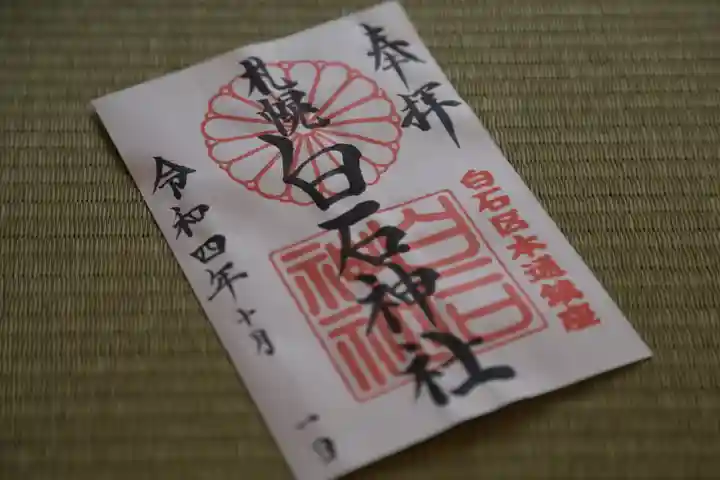 奉拝
白石区本通鎮座
札幌
白石神社
白石神社
令和四年十月一日